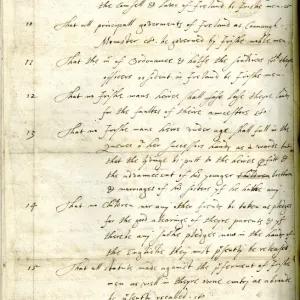 the Counsell & Lawes of Ireland to Irishe men
10 That all principall governments of Ireland as Connaugh
Mounster &c. be governed by Irishe noble men
11 That the of Ordonance & halfe the souldiers &
officers resident in Ireland be Irishe men
12 That no Irishe mans heires shall loose theyre lands
for the faultes of theire ancestors &c
13 That no Irishe mans heire under age shall fall in the
Queenes or her successors hands as a warde but
that the livinge be put to the heires profit &
the advancement of his younger brethern
& marriages of his sisters yf he hathe any
14 That no children nor any other freinds be taken as pledges
for the good abearinge of theyre parents & yf
there be any suche pledges now in the hands of
the Englishe they must presently be released
15 That all statuts made against the preferment of Irishe
men as well in theyre owne contry as abroade
be presently recaled &c